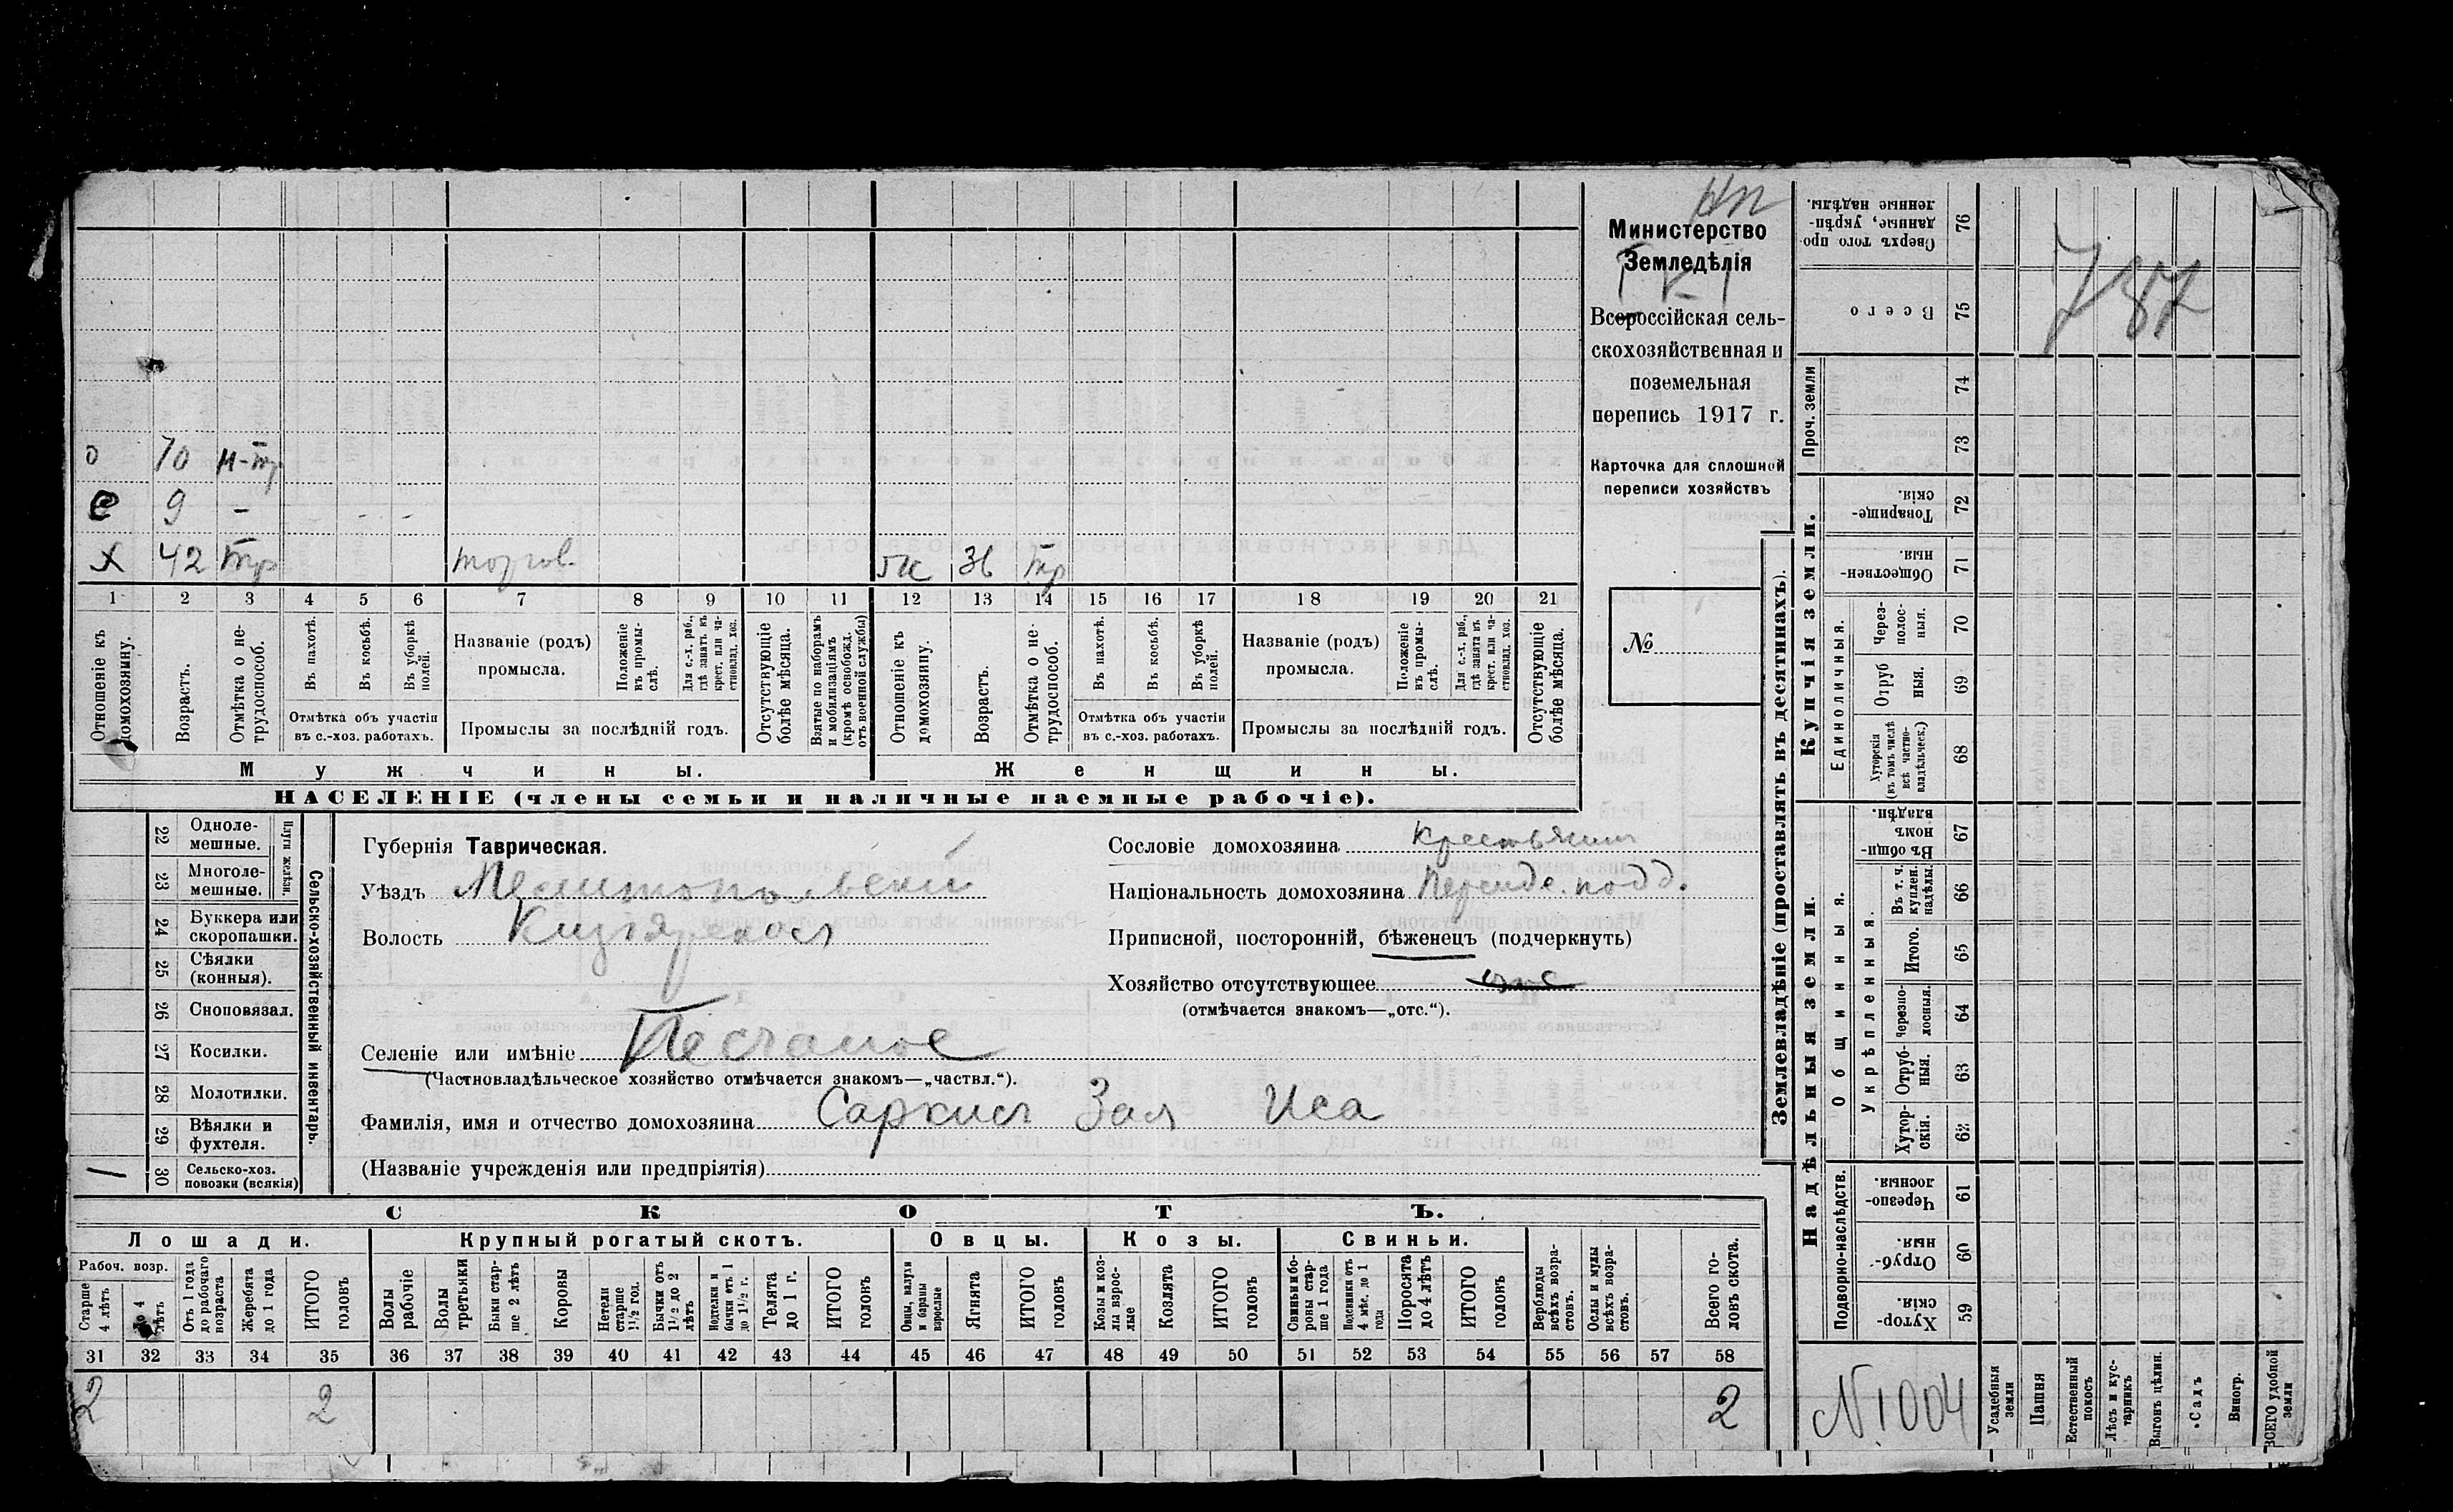 Министерство
Земледѣлія
Всероссійская сель-
скохозяйственная и
поземельная
перепись 1917 г.
Карточка для сплошной
переписи хозяйствъ
№
О 70 н-тр
С 9 -
Х 42 тр торгов. ж 36 тр
1 2 3 4 5 6 7 8 9 10 11 12 13 14 15 16 17 18 19 20 21
Отношеніе къ домохозяину.
Возрастъ.
Отмѣтка о не-трудоспособ.
Въ пахотѣ.
Въ косьбѣ.
Въ уборкѣ полей.
Отмѣтка объ участіи
въ с.-хоз. работахъ.
Названіе (родъ)
промысла.
Положеніе въ промы-слѣ.
Для с.-х. раб., гдѣ занятъ въ крест. или ча-стновлад. хоз.
Промыслы за послѣдній годъ.
Отсутствующіе болѣе мѣсяца.
Взятые по наборамъ и мобилизаціямъ (кромѣ освобожд. отъ военной службы)
Отношеніе къ домохозяину.
Возрастъ.
Отмѣтка о не-трудоспособ.
Въ пахотѣ.
Въ косьбѣ.
Въ уборкѣ полей.
Отмѣтка объ участіи
въ с.-хоз. работахъ.
Названіе (родъ)
промысла.
Положеніе въ промы-слѣ.
Для с.-х. раб., гдѣ занята въ крест. или ча-стновлад. хоз.
Промыслы за послѣдній годъ.
Отсутствующіе болѣе мѣсяца.
Мужчины.
Женщины.
НАСЕЛЕНІЕ (члены семьи и наличные наемные рабочіе).
22 Одноле-мешные.
23 Многоле-мешные.
Плуги желѣзн.
24 Буккера или скоропашки.
25 Сѣялки (конныя).
26 Сноповязал.
27 Косилки.
28 Молотилки.
29 Вѣялки и фухтеля.
1 30 Сельско-хоз. повозки (всякія)
Сельско-хозяйственный инвентарь.
Губернія Таврическая.
Уѣздъ Мелитопольскій
Волость Кизіярская
Селеніе или имѣніе Песчаное
(Частновладѣльческое хозяйство отмѣчается знакомъ—„частвл.“).
Фамилія, имя и отчество домохозяина Саркисъ Зая Иса
(Названіе учрежденія или предпріятія)
Сословіе домохозяина Крестьянин
Національность домохозяина Персидс. подд.
Приписной, посторонній, бѣженецъ (подчеркнуть)
Хозяйство отсутствующее
(отмѣчается знакомъ—„отс.“).
СКОТЪ.
Лошади.
Крупный рогатый скотъ.
Овцы.
Козы.
Свиньи.
Рабоч. возр.
Старше 4 лѣтъ
До 4 лѣтъ
Отъ 1 года до рабочаго возраста
Жеребята до 1 года
ИТОГО головъ
Волы рабочіе
Волы третьяки
Быки стар-ше 2 лѣтъ
Коровы
Нетели старше 1½ год.
Бычки отъ 1½ до 2 лѣтъ
Подтелки и бычки отъ 1 до 1½ г.
Телята до 1 г.
ИТОГО головъ
Овцы, валухи и бараны взрослые
Ягнята
ИТОГО головъ
Козы и коз-лы взрос-лые
Козлята
ИТОГО головъ
Свиньи и бо-ровы стар-ше 1 года
Подсвинки отъ 4 мѣс. до 1 года
Поросята до 4 лѣтъ
ИТОГО головъ
Верблюды всѣхъ возра-стовъ.
Ослы и мулы всѣхъ возра-стовъ.
Всего го-ловъ скота.
31 32 33 34 35 36 37 38 39 40 41 42 43 44 45 46 47 48 49 50 51 52 53 54 55 56 57 58
2 2 2
Землевладѣніе (проставлять въ десятинахъ).
Купчія земли.
Надѣльныя земли.
76 Сверхъ того про-данные, укрѣп-ленные надѣлы.
75 Всего
Проч. земли
74
73
72 Товарище-скія.
71 Обществен-ныя.
Единоличныя.
70 Через-полос-ныя.
69 Отруб ныя.
68 Хуторскія (въ томъ числѣ всѣ частно-владѣльческ.)
Общинныя.
67 Въ общин-номъ владѣн.
Укрѣпленныя.
66 Въ т. ч. куплен. надѣлы.
65 Итого.
64 Черезпо-лосныя.
63 Отруб-ныя.
62 Хутор-скія.
Подворно-наслѣдств.
61 Черезпо-лосныя.
60 Отруб-ныя.
59 Хутор-скія.
Усадебныя земли
Пашня
Естественный покосъ
Лѣсъ и кус-тарникъ
Выгонъ цѣлин.
Садъ
Виногр.
ВСЕГО удобной земли
N 1004